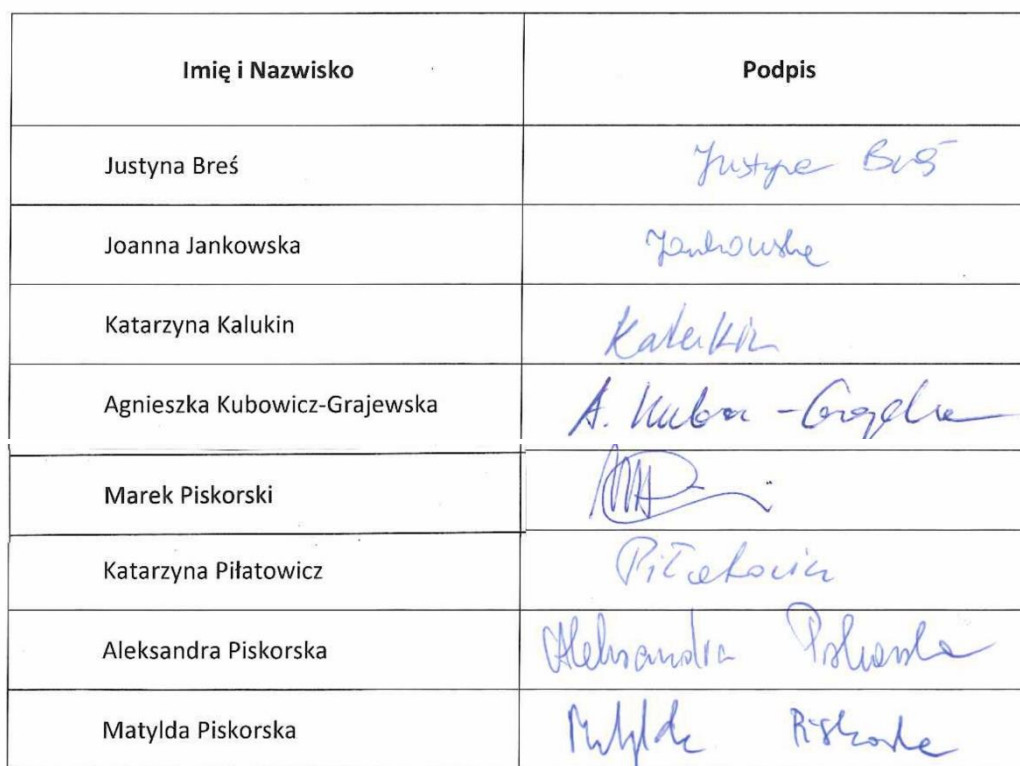 Imię i Nazwisko Podpis
Justyna Breś Justyna Breś
Joanna Jankowska Jankowska
Katarzyna Kalukin Kalukin
Agnieszka Kubowicz-Grajewska A.
Marek Piskorski
Katarzyna Piłatowicz Piłatowicz
Aleksandra Piskorska Aleksandra Piskorska
Matylda Piskorska Matylda Piskorska